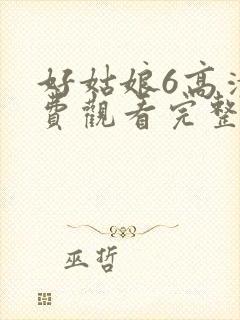 好姑娘6高
費觀看完整
巫哲